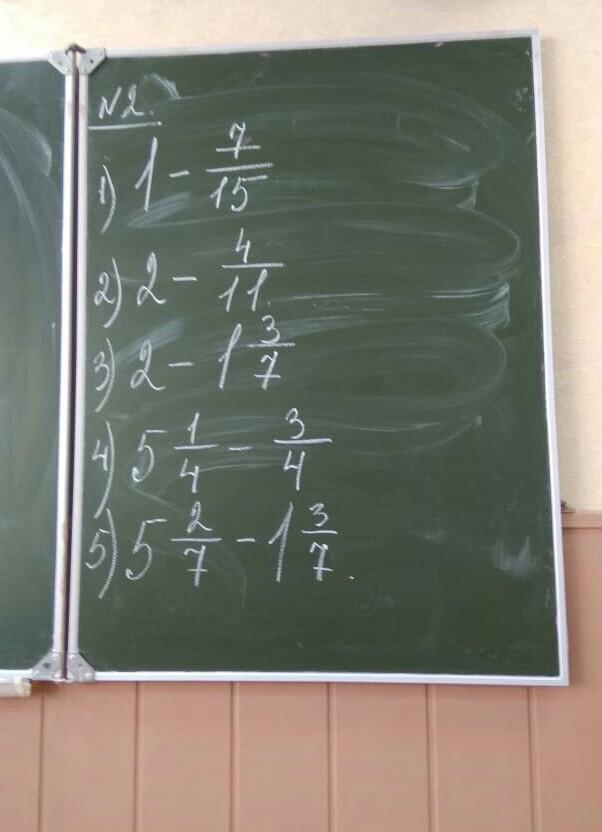 N2.
1) 1 - 7/15
2) 2 - 4/11
3) 2 - 1 3/7
4) 5 1/4 - 3/4
5) 5 2/7 - 1 3/7